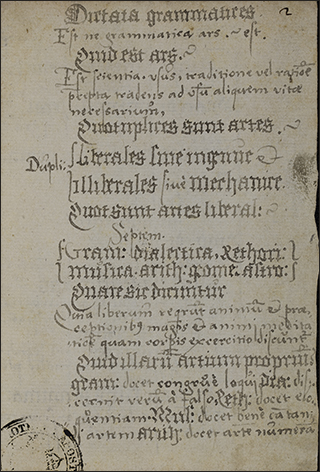 Dictata grammatices 2
Est ne grammatica ars. ~ est.
Quid est ars. ~
Est scientia, usus, traditione vel ratiõe
p̃cepta tradens ad usũ aliquem vitae
necessarium,
Quotuplices sunt artes. ~
Dupli: liberales sive ingenue &
illiberales sive mechanice.
Quot sunt artes liberal: ~
Septem.
Gram: dialectica, Rethori:
musica. arith: gome: astro:
Quare sic dicuntur
Quia liberum reqrũt animũ & prae
ceptionibg magis & animi medita
tione quam corporis excercitio discunt̃
Quid illarũ artium propriũ
gram: docet congruẽ loqui Dia: dis
cernit verũ a falso Reth: docet elo
quentiam Mus: docet bene cãtani
artem arith: docet arte numera